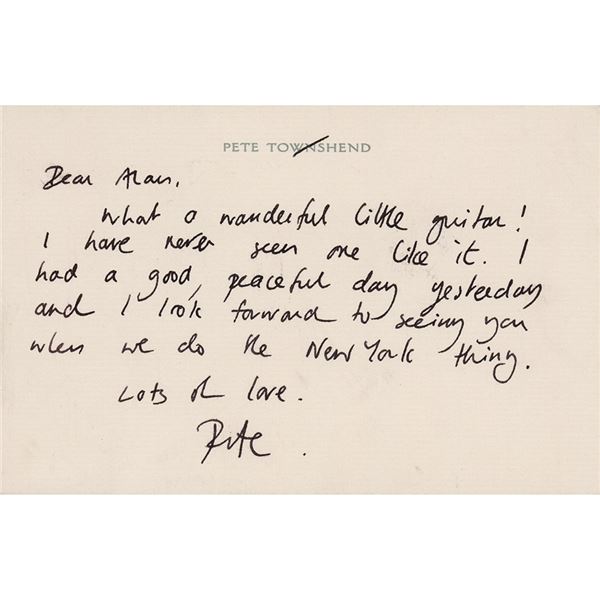 PETE TOWNSHEND
Dear Alan,
What a wonderful little guitar!
I have never seen one like it. I
had a good, peaceful day yesterday
and I look forward to seeing you
when we do the New York thing.
Lots of love.
Pete.